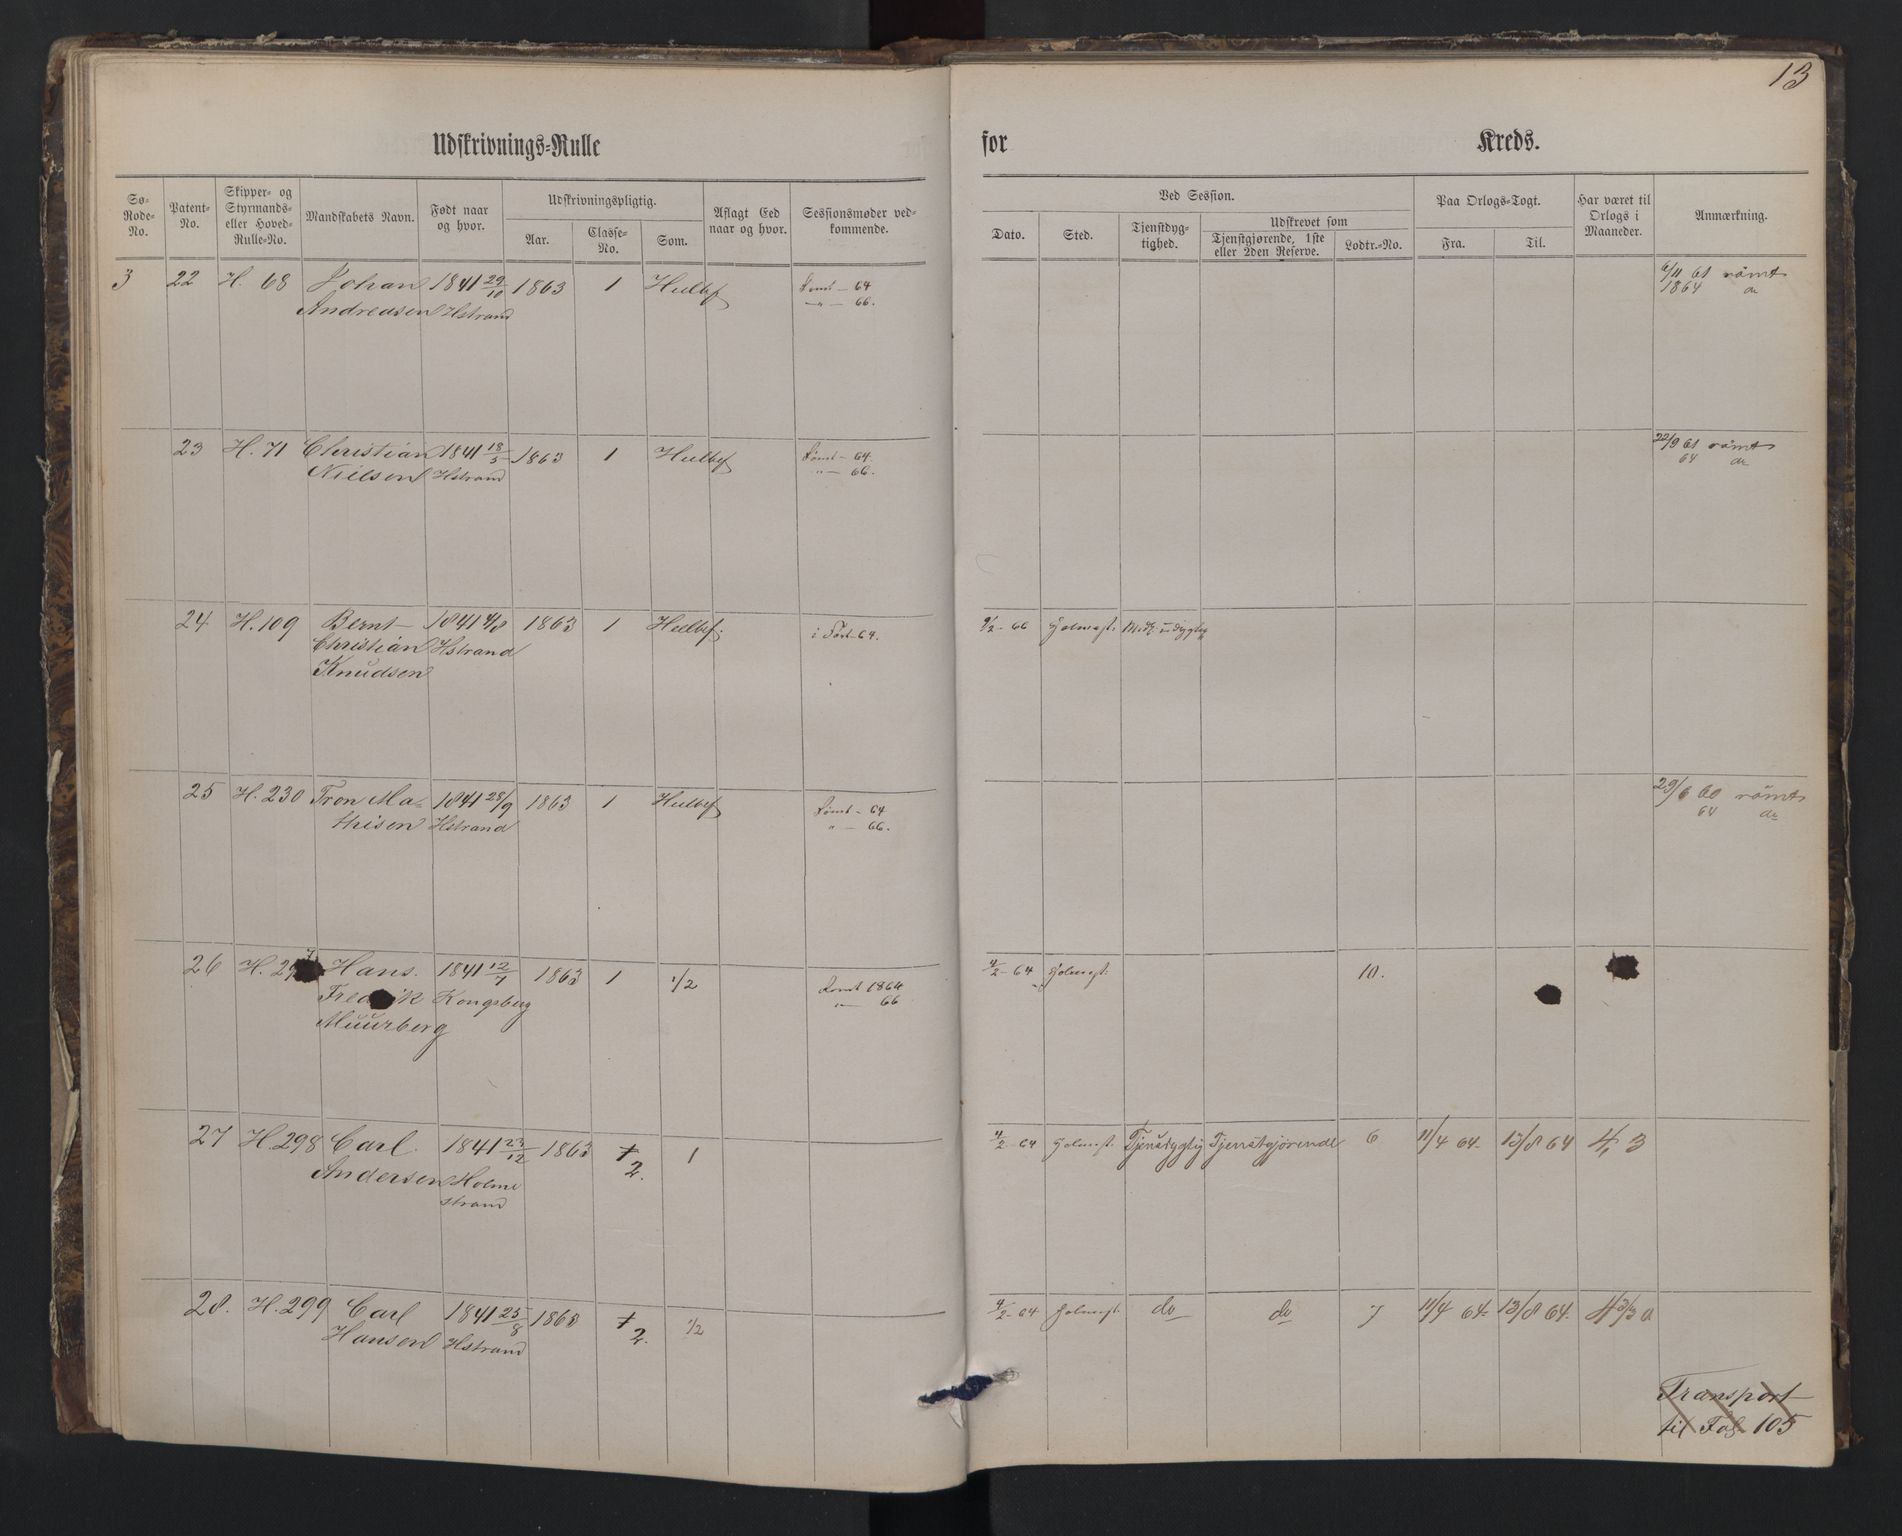 13
Udskrivnings-Rulle for Kreds.
Sø-Rode-No. Patent-No. Skipper- og Styrmands- eller Hoved-Rulle-No. Mandskabets Navn. Født naar og hvor. Udskrivningspligtig. Aar. Classe-No. Som. Aflagt Eed naar og hvor. Sessionsmøder vedkommende.
Ved Session. Dato. Sted. Tjenstdygtighed. Udskrevet som Tjenstgjørende, 1ste eller 2den Reserve. Lodtr.-No. Paa Orlogs-Togt. Fra. Til. Har været til Orlogs i Maaneder. Anmærkning.
3 22 H. 68 Johan 1841 29/10 1863 1 Hulbef Rømt - 64 6/11 61 römt
Andreasen Hstrand -"- 66. 1864 do
23 H. 71 Christian 1841 18/5 1863 1 Hulbef Rømt - 64. 22/9 61 römt
Nielsen Hstrand " - 66. 64 do
24 H. 109 Bernt 1841 4/8 1863 1 Hulbef. i Fart - 64. 9/2 - 66 Holmest:
Christian Hstrand
Knudsen
25 H. 230 Tron Ma- 1841 28/9 1863 1 Hulbef Rømt - 64 29/6 60 römt
thisen Hstrand " - 66. 64 do
26 H. 297 Hans. 1841 12/7 1863 1 1/2 Rømt 1864 4/2 - 64 Holmest: 10.
Fredrik Kongsberg "- 66
Muurberg
27 H. 298 Carl 1841 23/12 1863 1 2. 1 4/2 - 64 Holmest. Tjenstdygtig Tjenstgjørende 6 11/4 64. 13/8 64 4,3
Andersen Holme
strand
28. H. 299 Carl 1841 25/8 1863 1 2. 1/2 4/2 - 64 Holmest. do do 7 11/4 64. 13/8 64.
Hansen Hstrand
Transport
til Fol. 105